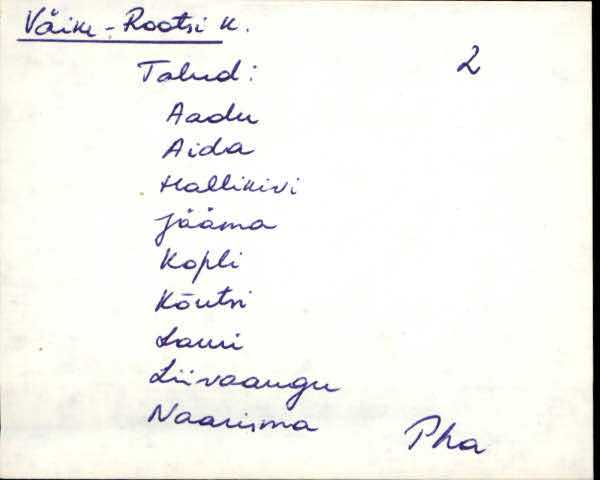 Väike-Rootsi k.
2
Talud:
Aadu
Aida
Hallikivi
Jääma
Kopli
Kõutsi
Lauri
Liivaaugu
Naarisma
Pha